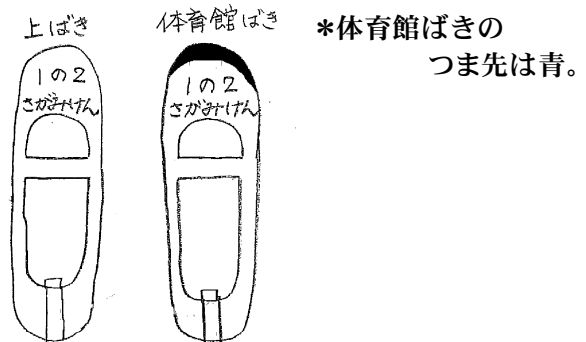 上ばき
1の2
さがみけん
体育館ばき
1の2
さがみけん
＊体育館ばきの
つま先は青。